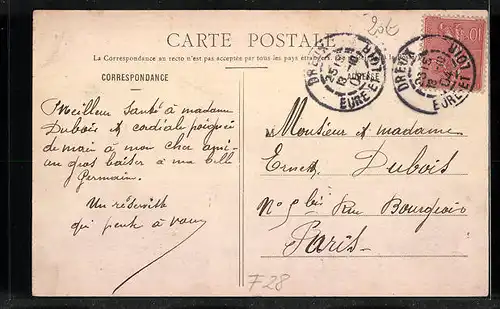 20E
CARTE POSTALE
La Correspondance au recto n'est pas acceptée par tous les pays étrangers.
CORRESPONDANCE
ADRESSE
DREUX
EURE ET LOIR
DREUX
EURE ET LOIR
10
Meilleur santé à madame
Dubois et cordiale poignée
de main à mon cher ami
un gros baiser à ma belle
Germain.
Un réserviste
qui pense à vous
Monsieur et madame
Ernest Dubois
N° 9 bis Rue Bourgeois
Paris
F 28